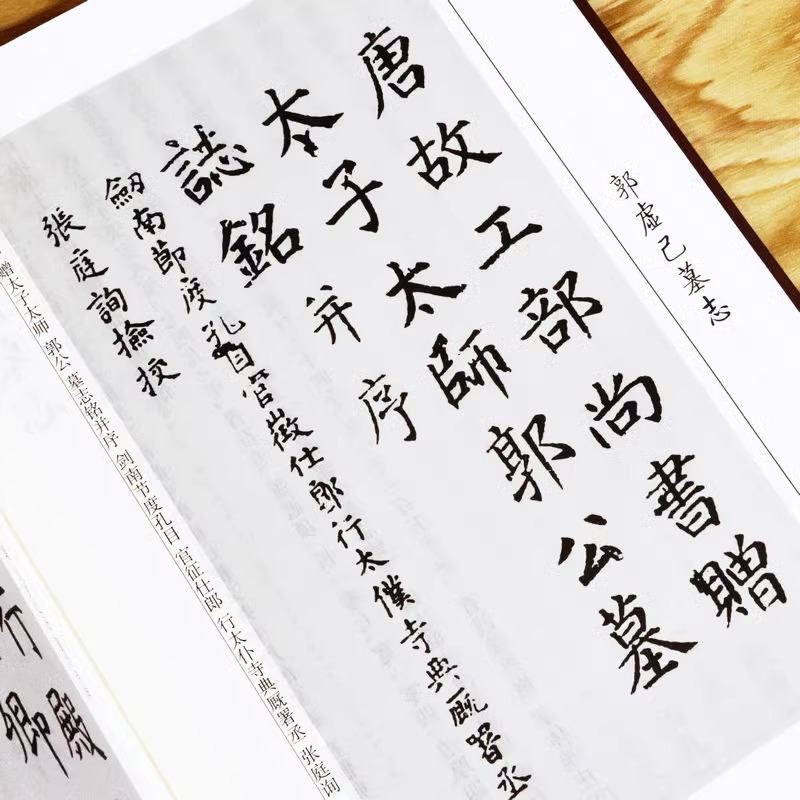 郭虚己墓志
唐故工部尚書贈
太子太師郭公墓
誌銘并序
劔南節度孔目官徵仕郎行太僕寺典厩署丞
張庭詢撿挍
赠太子太师 郭公 墓志铭并序 剑南节度孔目 官征仕郎 行太仆寺典厩署丞 张庭询
行
卿殿